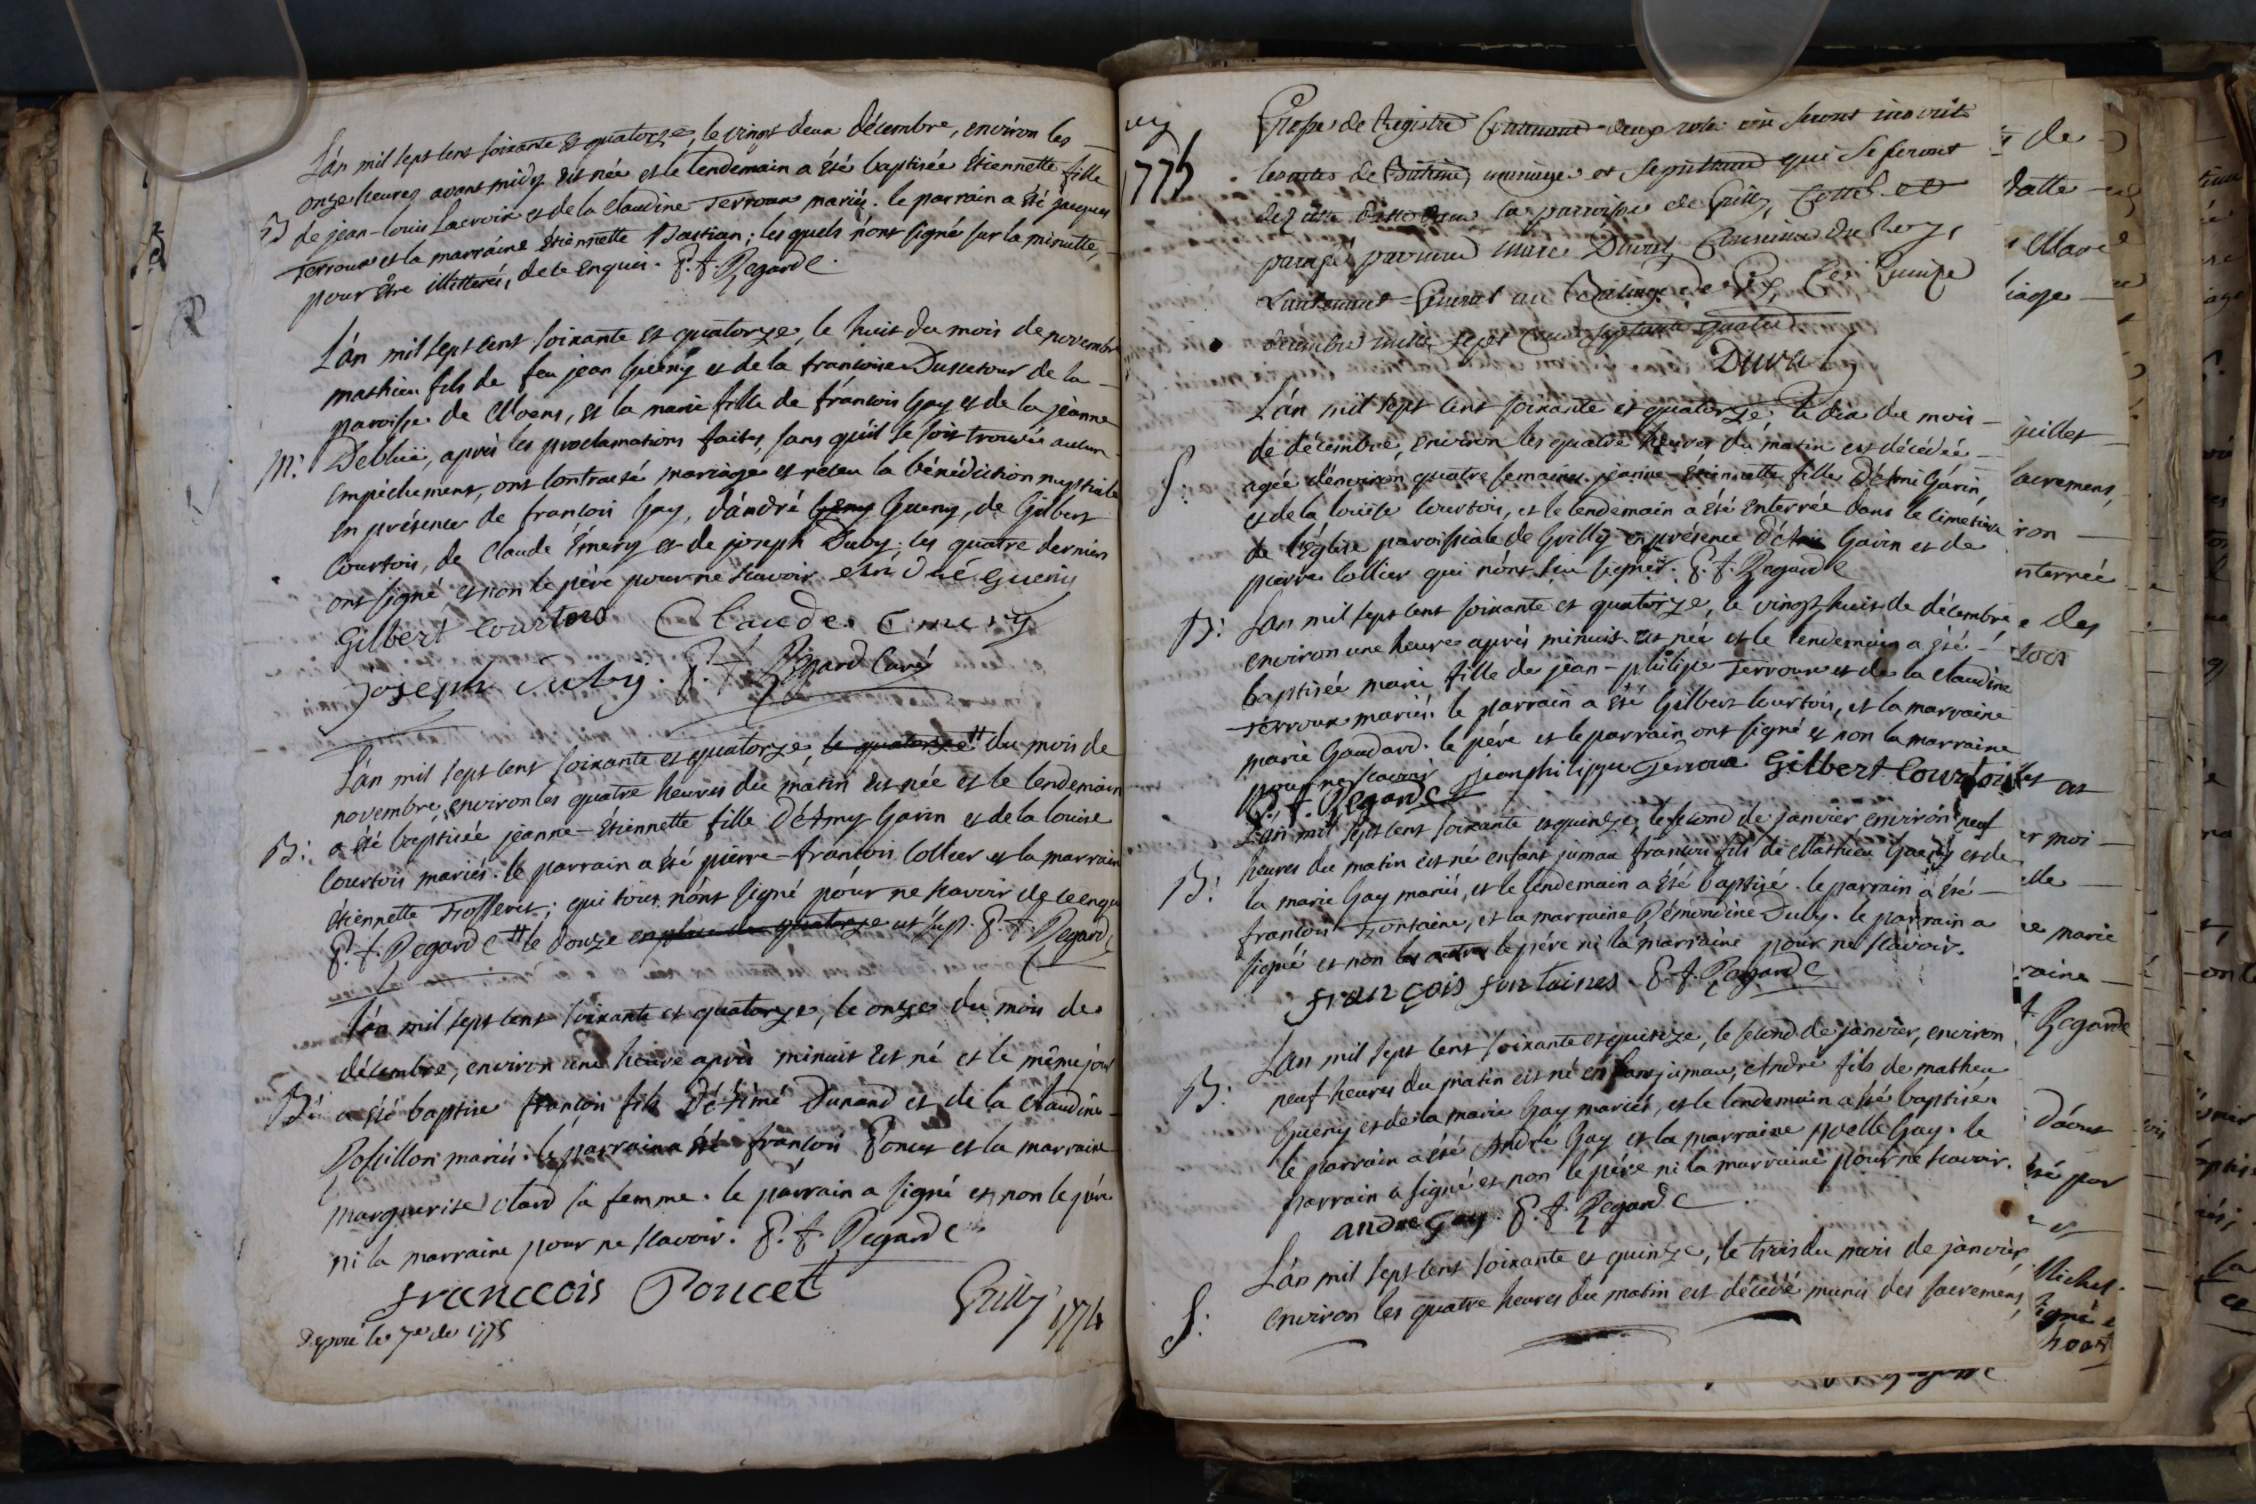 L'án mil sept cent soixante et quatorze, le vingt deux décembre, environ les
onze heures avant midy est née et le lendemain a été baptisée étiennette fille
B de jean-louis Lacroix et de la claudine Terroux mariés. le parrain a été jacques
Terroux et la marraine étiennette Bastian; les quels n'ont signé sur la minutte,
pour être illitterés, de ce enquis. P. f. Regard C.
L'án mil sept cent soixante et quatorze, le huit du mois de novembre
mathieu fils de feu jean Gueny et de la francoise Dussetour de la
paroisse de Moens, et la marie fille de francois Gay et de la jeanne
M: Debluë, après les proclamations faites, sans qu'il se soit trouvée aucun
empéchement, ont contracté mariage et receu la bénédiction nuptiale
en présence de francois Gay, d'andré Gueny, de Gilbert
Courtois, de claude émery et de joseph Duby; les quatre derniers
ont signé et non le père pour ne scavoir. andré Gueny
Gilbert courtois Claude Emery
joseph duby. P. f. Regard Curé
L'án mil sept cent soixante et quatorze, le quatorze # du mois de
novembre, environ les quatre heures du matin est née et le lendemain
B: a été baptisée jeanne-étiennette fille d'Amy Garin et de la louise
Courtois mariés. le parrain a été pierre-francois Collier et la marraine
étiennette ; qui tous n'ont signé pour ne scavoir de ce enquis
P. f. Regard C # le douze en place du quatorze ut sup. P. f. Regard C
L'án mil sept cent soixante et quatorze, le onze du mois de
décembre, environ une heure après minuit est né et le même jour
B: a été baptisé francois fils d'Aimé Dunand et de la claudine
Possillon mariés. le parrain a été francois Poncet et la marraine
marguerite sa femme. le parrain a signé et non le père
ni la marraine pour ne scavoir. P. f. Regard C
francois Poncet
Grilly 1774
le 7e de 1775
1775
de Registre contenant où seront inscrits
les actes de Batême, mariage et sepulture qui se feront
dans la paroisse de Grilly, Cotté et
paraphé par nous marc Duval, Conseiller du Roy,
Lieutenant General au Bailliage de Gex, Ce quinze
décembre mille sept cent septante quatre
Duval
L'án mil sept cent soixante et quatorze le dix du mois
de décembre, environ les quatre heures du matin est décédée
S: agée d'environ quatre semaines jeanne étiennette fille d'Ami Garin,
et de la louise courtois, et le lendemain a été enterrée dans le cimetière
de l'église paroissiale de Grilly en présence d'Ami Garin et de
pierre collier qui n'ont sçu signer. P. f. Regard C
B: L'án mil sept cent soixante et quatorze, le vingt huit de décembre,
environ une heure après minuit est née et le lendemain a été
baptisée marie fille de jean-philipe Terroux et de la claudine
Terroux mariés. le parrain a été Gilbert courtois, et la marraine
marie Gaudard. le père et le parrain ont signé et non la marraine
pour ne scavoir jean philippe Terroux Gilbert Courtois
P. f. Regard C
L'án mil sept cent soixante et quinze, le second de janvier, environ neuf
B: heures du matin est né enfant jumau francois fils de Mathieu Gueny et de
la marie Gay mariés, et le lendemain a été baptisé. le parrain a été
francois Fontaine, et la marraine Rémondine Duby. le parrain a
signé et non les autres le père ni la marraine pour ne scavoir.
françois funtaines P. f. Regard C
L'án mil sept cent soixante et quinze, le second de janvier, environ
B: neuf heures du matin est né enfant jumau, André fils de mathieu
Gueny et de la marie Gay mariés, et le lendemain a été baptisé.
le parrain a été André Gay et la marraine Gay. le
parrain a signé et non le père ni la marraine pour ne scavoir.
andre Gay. P. f. Regard C
L'án mil sept cent soixante et quinze, le trois du mois de janvier,
S: environ les quatre heures du matin est décédé munis des sacremens,